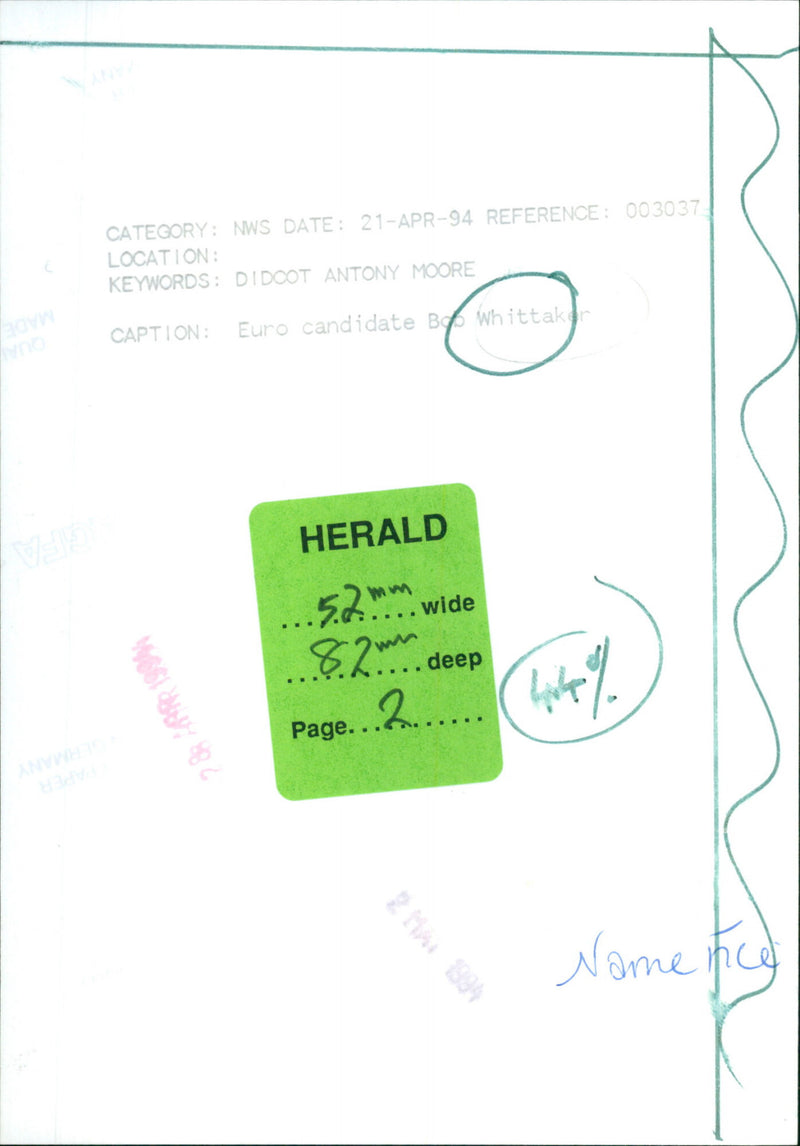 CATEGORY: NWS DATE: 21-APR-94 REFERENCE: 003037
LOCATION:
KEYWORDS: DIDCOT ANTONY MOORE
CAPTION: Euro candidate Bob Whittaker
HERALD
52mm wide
82mm deep
Page...2
44%
2 MAY 1994
Name